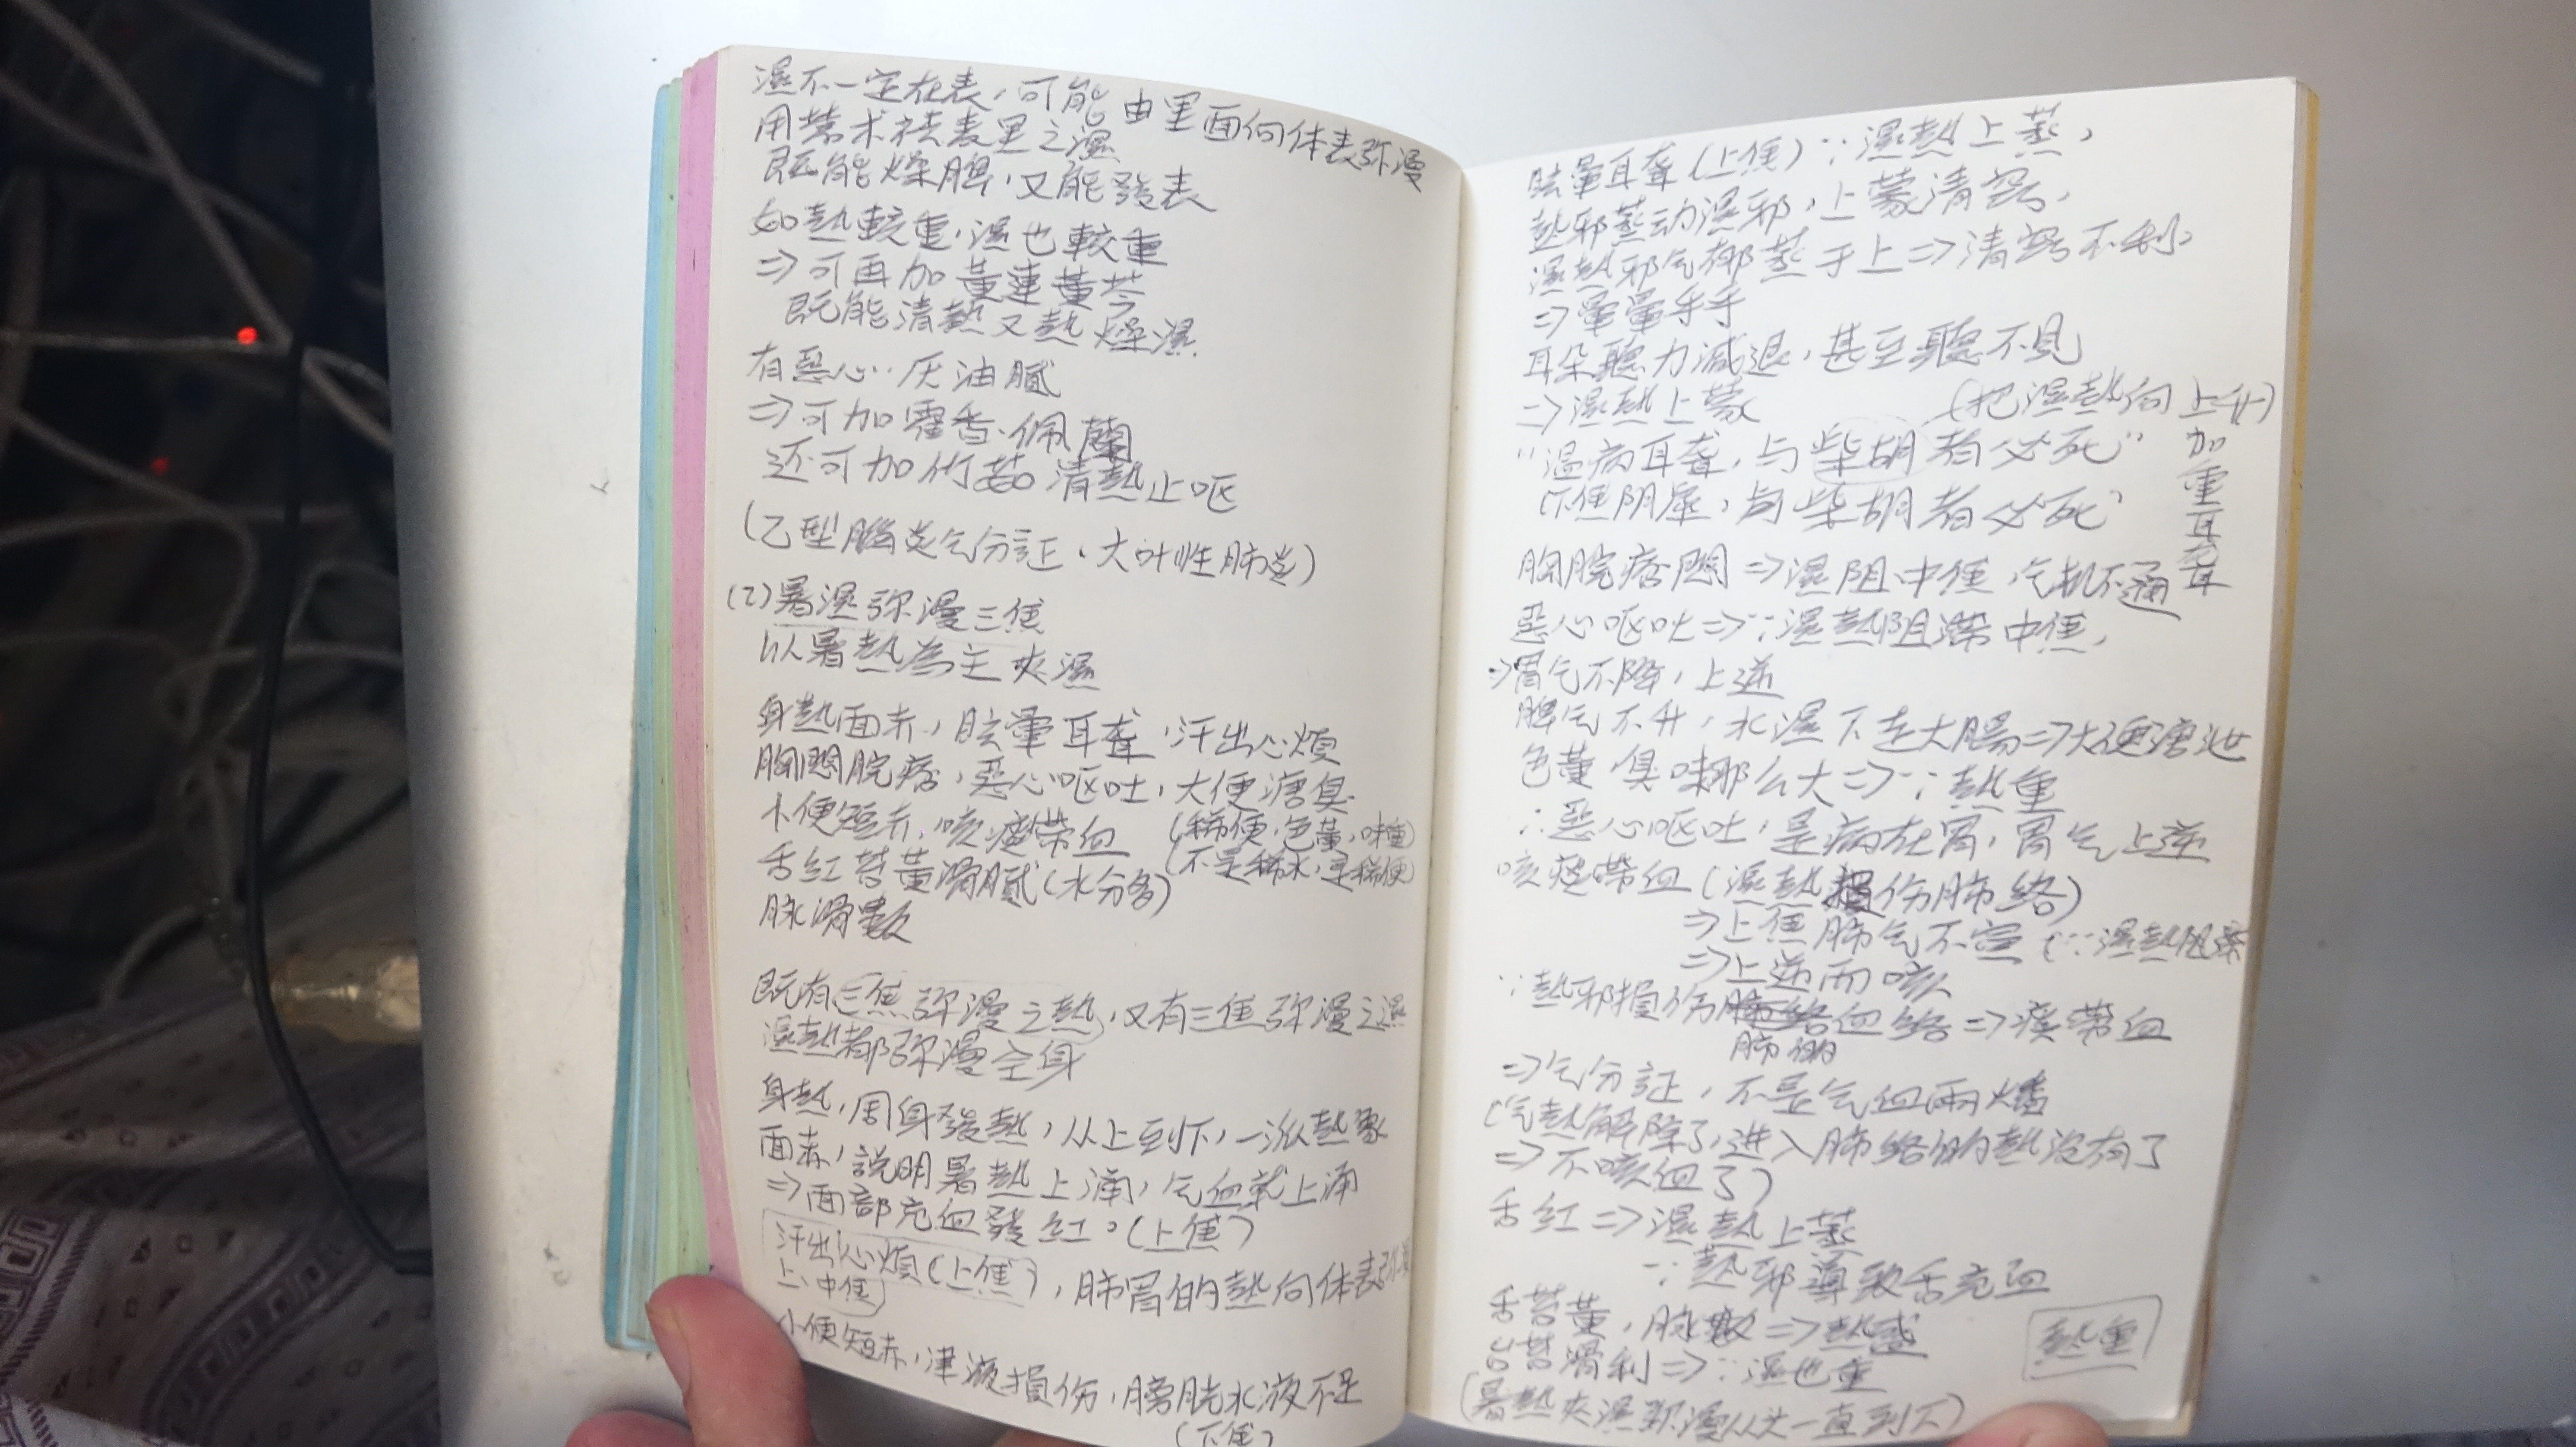 濕不一定在表，可能由里面向体表弥漫
用蒼术祛表里之濕
既能燥脾，又能發表
如熱較重，濕也較重
⇒可再加黃蓮黃芩
既能清熱又熱燥濕
有惡心，厌油膩
⇒可加霍香、佩蘭
还可加竹茹清熱止呕
(乙型腦炎气分証、大叶性肺炎)
(2)暑濕弥漫三焦
以暑熱為主夾濕
身熱面赤，眩暈耳聾，汗出心煩
胸悶脘痞，惡心呕吐，大便溏臭
小便短赤，咳痰帶血 (稀便，色黃，味重)
(不是稀水，是稀便)
舌紅苔黃滑膩(水分多)
脉滑數
既有三焦弥漫之熱，又有三焦弥漫之濕
濕熱都弥漫全身
身熱，周身發熱，从上到下，一派熱象
面赤，説明暑熱上涌，气血就上涌
⇒面部充血發紅。(上焦)
汗出心煩(上焦)，肺胃的熱向体表
上、中焦
小便短赤，津液損伤，膀胱水液不足
(下焦)
眩暈耳聾(上焦)∵濕熱上蒸，
熱邪蒸动濕邪，上蒙清窍，
濕熱邪气都蒸于上⇒清窍不利
⇒暈暈乎乎
耳朵聽力減退，甚至聽不見
⇒濕熱上蒙
(把濕熱向上升)
加重耳聾
"温病耳聾，与柴胡者必死"
(下焦阴虛，与柴胡者必死)
胸脘痞悶⇒濕阻中焦，气机不通
惡心呕吐⇒∵濕熱阻滯中焦，
⇒胃气不降，上逆
脾气不升，水濕下走大腸⇒大便溏泄
色黃，臭味那么大⇒∵熱重
∴惡心呕吐，是病在胃，胃气上逆
咳痰帶血(濕熱損伤肺絡)
⇒上焦肺气不宣(∵濕熱阻
⇒上逆而咳
∵熱邪損伤血絡⇒痰帶血
肺的
⇒气分証，不是气血兩燔
(气熱解除了，进入肺絡的熱没有了
⇒不咳血了)
舌紅⇒濕熱上蒸
∵熱邪導致舌充血
舌苔黃，脉數⇒熱盛
舌苔滑利⇒∵濕也重
熱重
(暑熱夾濕弥漫从头一直到下)